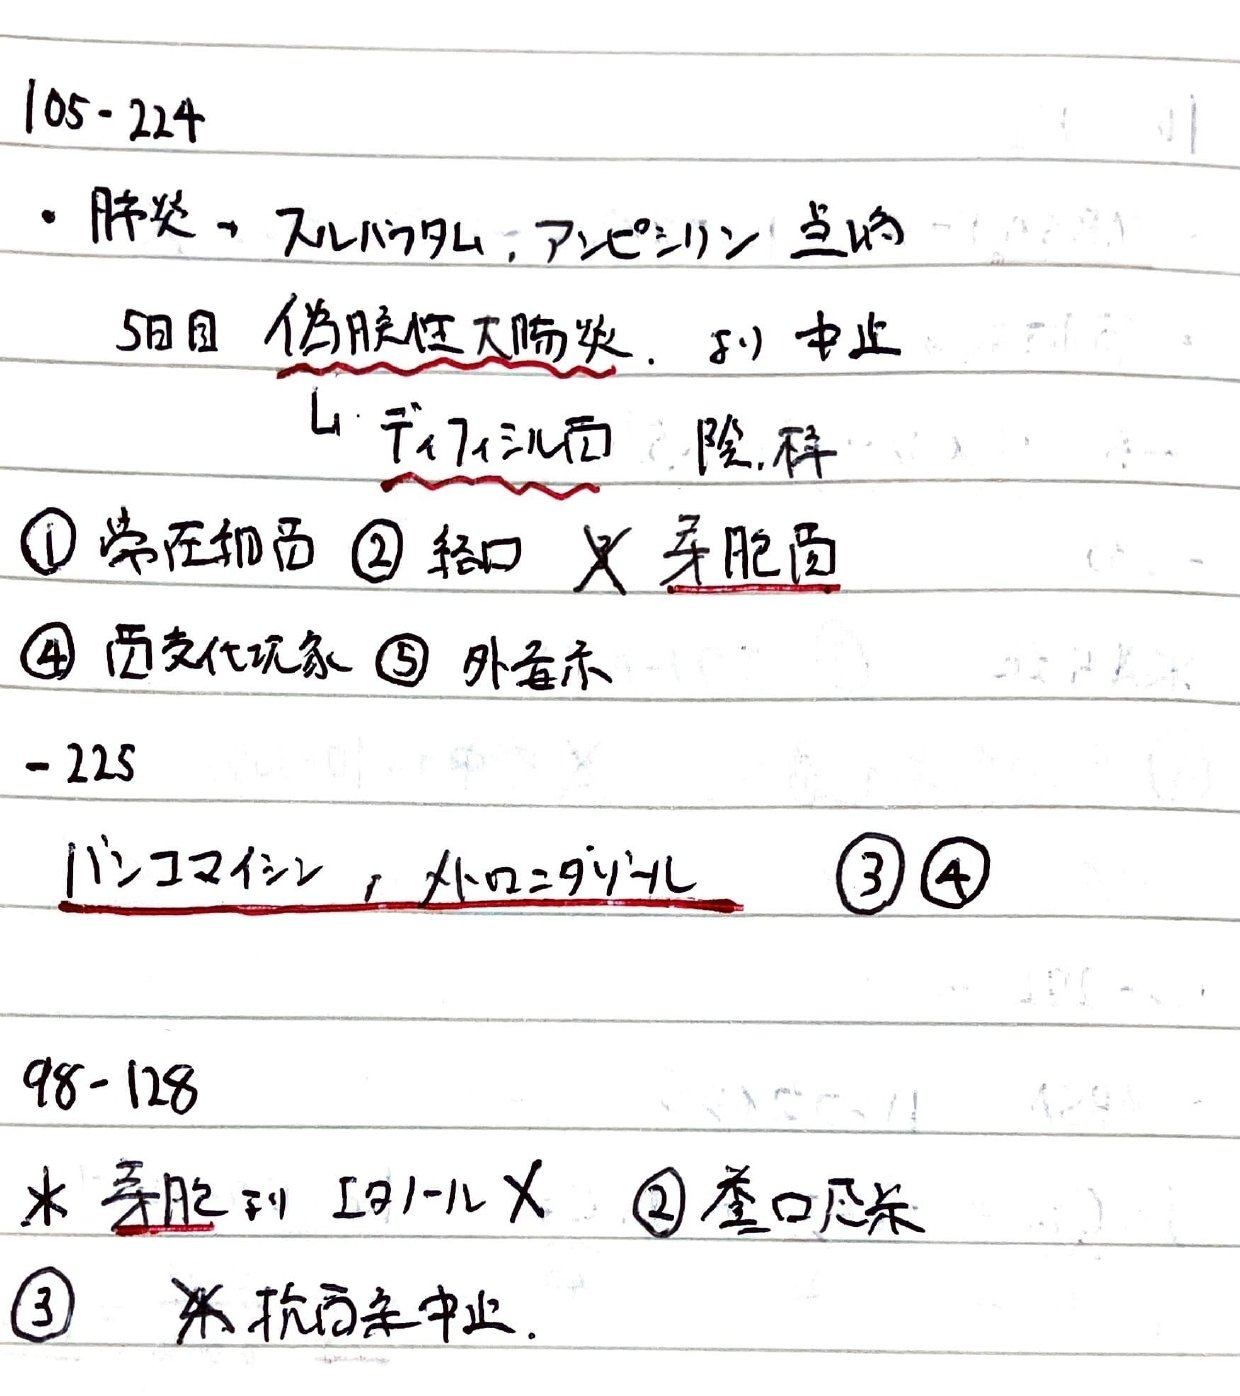 105-224
・肺炎→スルバクタム, アンピシリン 点滴
5日目 偽膜性大腸炎. より 中止
ディフィシル菌 陽.桿
① 常在細菌 ② 経口 X 芽胞菌
④ 菌交代現象 ⑤ 外毒素
-225
バンコマイシン, メトロニダゾール ③ ④
98-128
* 芽胞より エタノール X ② 糞口感染
③ 抗菌薬中止.